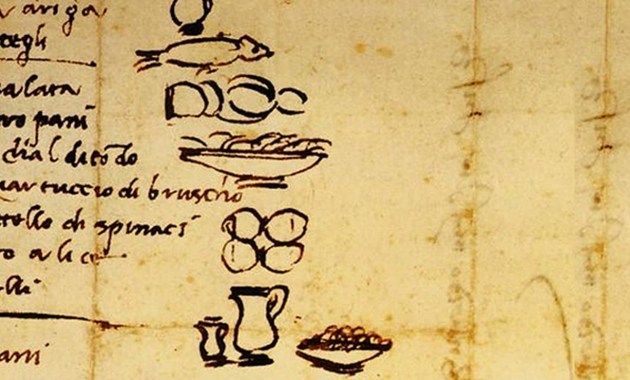 aringa
tegli
alata
tro pani
di al di tōdo
uartuccio di bruscho
tello di spinaci
alice
elli
pani